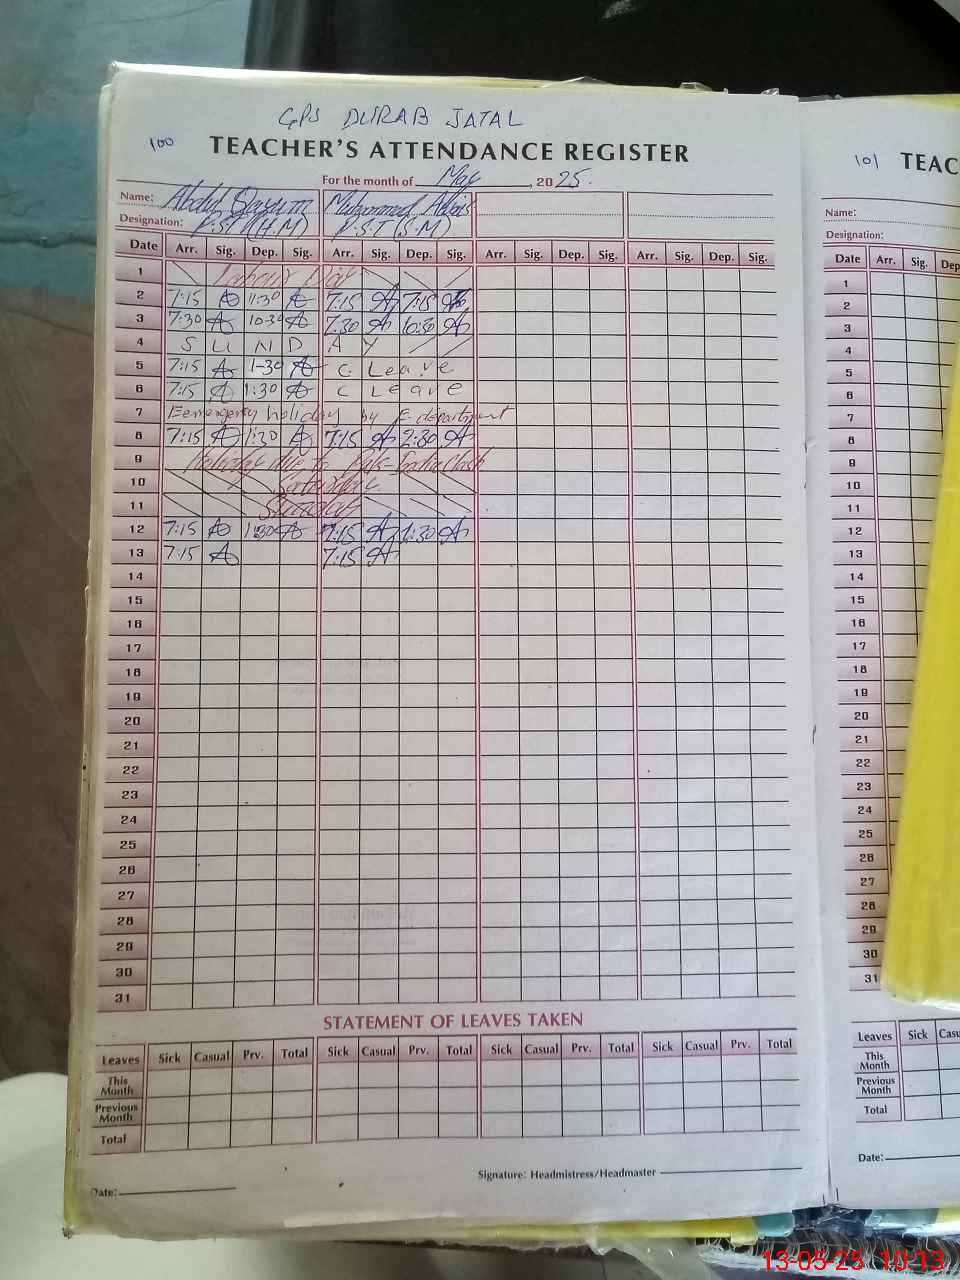 GPS DURAB JATAL
100 TEACHER'S ATTENDANCE REGISTER
For the month of May, 2025.
Name: Abdul Qayum Muhammad
Designation: P.S.T (H.M) P.S.T (S.M)
Date Arr. Sig. Dep. Sig. Arr. Sig. Dep. Sig. Arr. Sig. Dep. Sig. Arr. Sig. Dep. Sig.
1 Labour Day
2 7:15 11:30 7:15 7:15
3 7:30 10:30 7:30 10:30
4 S U N D A Y
5 7:15 1-30 C. Leave
6 7:15 1:30 C Leave
7 Eemergency holiday by E. department
8 7:15 1:30 7:15 2:30
9 Holiday due to Pak-India Clash
10 Saturday
11 Sunday
12 7:15 1:30 7:15 1:30
13 7:15 7:15
14
15
16
17
18
19
20
21
22
23
24
25
26
27
28
29
30
31
STATEMENT OF LEAVES TAKEN
Leaves Sick Casual Prv. Total Sick Casual Prv. Total Sick Casual Prv. Total Sick Casual Prv. Total
This Month
Previous Month
Total
Signature: Headmistress/Headmaster
Date:
101 TEAC
Name:
Designation:
Date Arr. Sig. Dep
1
2
3
4
5
6
7
8
9
10
11
12
13
14
15
16
17
18
19
20
21
22
23
24
25
26
27
28
29
30
31
Leaves Sick Casu
This Month
Previous Month
Total
Date:
13-05-25 10:13